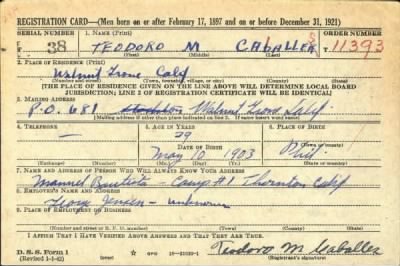 REGISTRATION CARD—(Men born on or after February 17, 1897 and on or before December 31, 1921)
SERIAL NUMBER 1. NAME (Print) ORDER NUMBER
F 38 TEODORO M CABALLES 11393
(First) (Middle) (Last)
2. PLACE OF RESIDENCE (Print)
Walnut Grove Calif
(Number and street) (Town, township, village, or city) (County) (State)
[THE PLACE OF RESIDENCE GIVEN ON THE LINE ABOVE WILL DETERMINE LOCAL BOARD
JURISDICTION; LINE 2 OF REGISTRATION CERTIFICATE WILL BE IDENTICAL]
3. MAILING ADDRESS
P.O. 681 Stockton Walnut Grove Calif
[Mailing address if other than place indicated on line 2. If same insert word same]
4. TELEPHONE 5. AGE IN YEARS 6. PLACE OF BIRTH
— 39
DATE OF BIRTH
May 10 1903 Phil
(Exchange) (Number) (Mo.) (Day) (Yr.) (State or country)
7. NAME AND ADDRESS OF PERSON WHO WILL ALWAYS KNOW YOUR ADDRESS
Manuel Bautista — Camp #1 Thornton Calif
8. EMPLOYER'S NAME AND ADDRESS
Jensen — unknown
9. PLACE OF EMPLOYMENT OR BUSINESS
(Number and street or R. F. D. number) (Town) (County) (State)
I AFFIRM THAT I HAVE VERIFIED ABOVE ANSWERS AND THAT THEY ARE TRUE.
D. S. S. Form 1
(Revised 1-1-42) GPO Teodoro M. Caballes
(Registrant's signature)